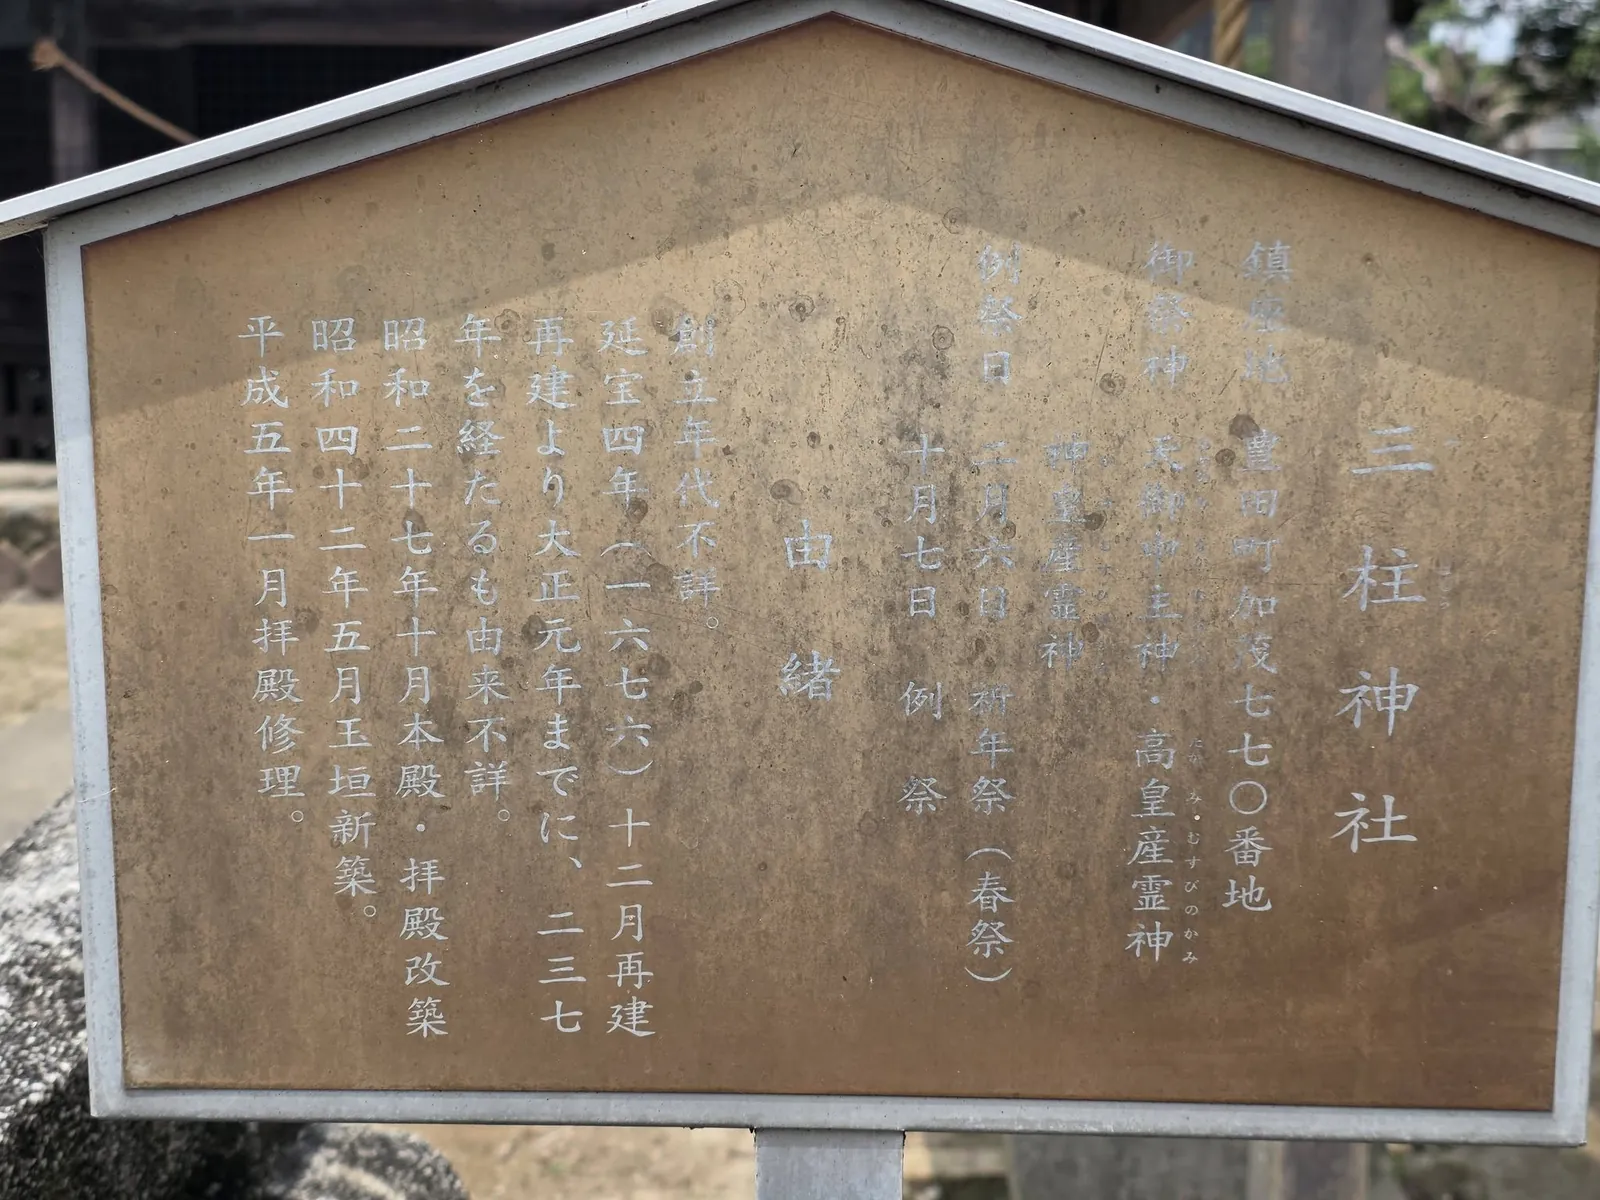 三柱神社
鎮座地　豊田町加茂七七〇番地
御祭神　天御中主神・高皇産霊神
たかみ・むすびのかみ
神皇産霊神
例祭日　二月六日　祈年祭（春祭）
十月七日　例　祭
由　緒
創立年代不詳。
延宝四年（一六七六）十二月再建
再建より大正元年までに、二三七
年を経たるも由来不詳。
昭和二十七年十月本殿・拝殿改築
昭和四十二年五月玉垣新築。
平成五年一月拝殿修理。